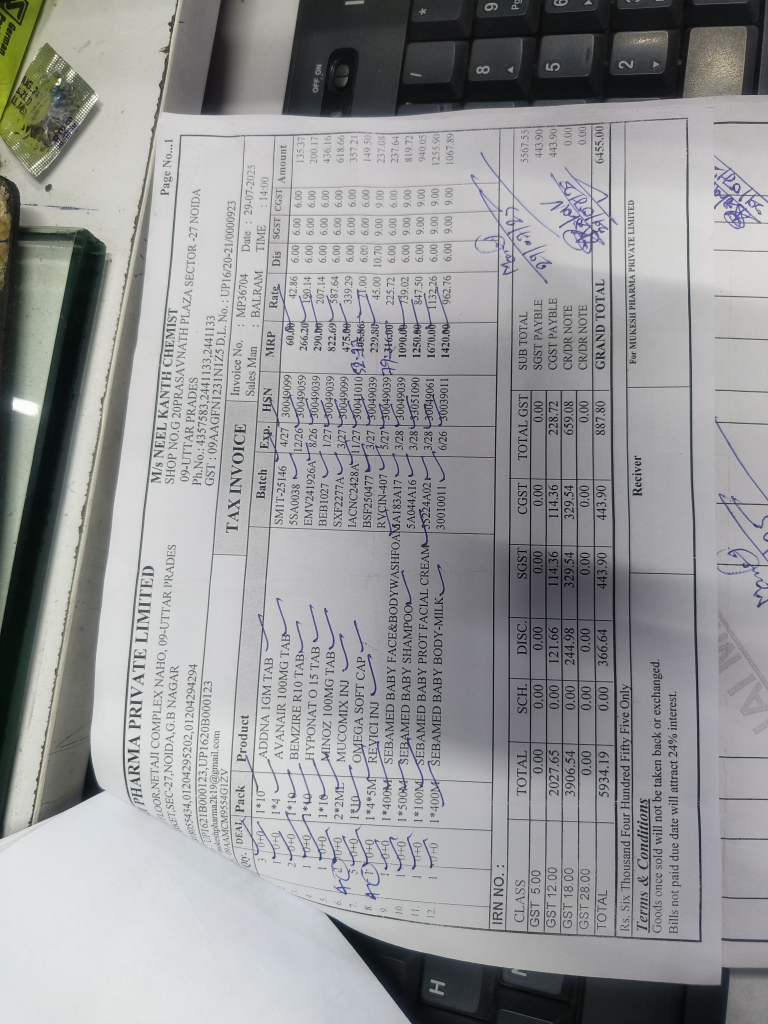 Page No...1
PHARMA PRIVATE LIMITED
LOOR,NETAJI COMPLEX NAHO, 09-UTTAR PRADES
KET,SEC-27,NOIDA,G.B NAGAR
4055434,01204295202,01204294294
UP1621B000123,UP1620B000123
ukeshpharma2k19@gmail.com
09AAMCM9554G1ZV
M/s NEEL KANTH CHEMIST
SHOP NO,G 20PRASAVNATH PLAZA SECTOR -27 NOIDA
09-UTTAR PRADES
Ph.No.: 4357583,2441133,2441133
GST : 09AAGFN1231N1Z5 D.L. No. : UP16/20-21/0000923
TAX INVOICE
Invoice No. : MP36704 Date : 29-07-2025
Sales Man : BALRAM TIME : 14:00
Qty. DEAL Pack Product Batch Exp. HSN MRP Rate Dis SGST CGST Amount
3 0+0 1*10 ADDNA 1GM TAB SMIT-25146 4/27 30049099 60.00 42.86 6.00 6.00 6.00 135.37
1 0+0 1*4 AVANAIR 100MG TAB 5SA0038 12/26 30049059 266.20 190.14 6.00 6.00 6.00 200.17
2 0+0 1*10 BEMZIRE R10 TAB EMV241926A 8/26 30049039 290.00 207.14 6.00 6.00 6.00 436.16
1 0+0 1*10 HYPONAT O 15 TAB BEB1027 1/27 30049039 822.69 587.64 6.00 6.00 6.00 618.66
5. 1 0+0 1*10 MINOZ 100MG TAB SXF2277A 3/27 30049099 475.00 339.29 6.00 6.00 6.00 357.21
6. 0+0 2*2ML MUCOMIX INJ IACNC2428A 11/27 30041010 71.00 6.00 6.00 6.00 149.50
7. 5 0+0 1*10 OMEGA SOFT CAP BSF250477 3/27 30049039 45.00 10.70 9.00 9.00 237.08
8. 0+0 1*4*5M REVICI INJ RVCIN-407 5/27 30049039 316.00 225.72 6.00 6.00 6.00 237.64
9. 1 0+0 1*400M SEBAMED BABY FACE&BODYWASHFOAM 5A183A17 3/28 30049039 1090.00 739.02 6.00 9.00 9.00 819.72
10. 1 0+0 1*500M SEBAMED BABY SHAMPOO 5A044A16 3/28 33051090 1250.00 847.50 6.00 9.00 9.00 940.05
11. 1 0+0 1*100M SEBAMED BABY PROT FACIAL CREAM 35224A02 3/28 30049061 1670.00 1132.26 6.00 9.00 9.00 1255.90
12 1 0+0 1*400M SEBAMED BABY BODY-MILK 30010011 6/26 30039011 1420.00 962.76 6.00 9.00 9.00 1067.89
IRN NO. :
CLASS TOTAL SCH. DISC. SGST CGST TOTAL GST SUB TOTAL 5567.55
GST 5.00 0.00 0.00 0.00 0.00 0.00 0.00 SGST PAYBLE 443.90
GST 12.00 2027.65 0.00 121.66 114.36 114.36 228.72 CGST PAYBLE 443.90
GST 18.00 3906.54 0.00 244.98 329.54 329.54 659.08 CR/DR NOTE 0.00
GST 28.00 0.00 0.00 0.00 0.00 0.00 0.00 CR/DR NOTE 0.00
TOTAL 5934.19 0.00 366.64 443.90 443.90 887.80 GRAND TOTAL 6455.00
Rs. Six Thousand Four Hundred Fifty Five Only
Terms & Conditions
Goods once sold will not be taken back or exchanged.
Bills not paid due date will attract 24% interest.
Reciver
For MUKESH PHARMA PRIVATE LIMITED
German
OFF ON